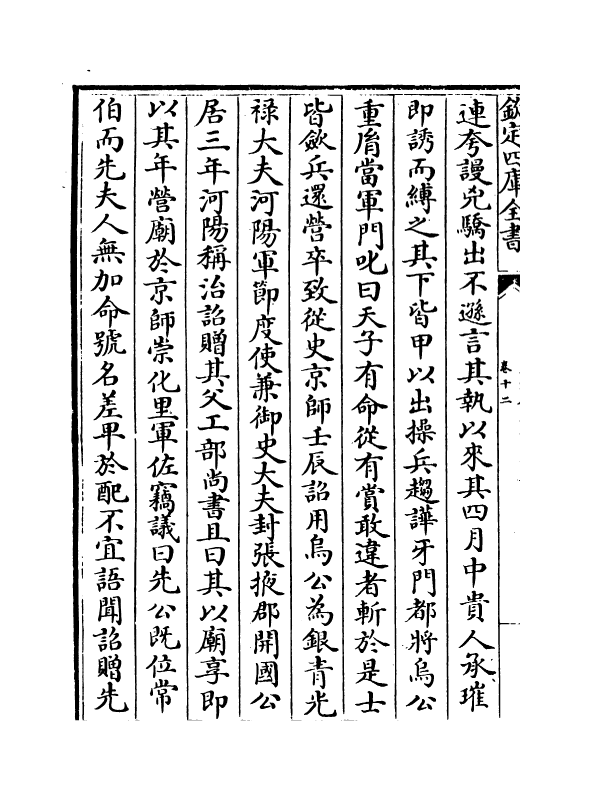 欽定四庫全書
卷十二
連夸謾兇驕出不遜言其執以來其四月中貴人承璀
即誘而縛之其下皆甲以出操兵趨譁牙門都將烏公
重㣧當軍門叱曰天子有命從有賞敢違者斬於是士
皆斂兵還營卒致從史京師壬辰詔用烏公為銀青光
禄大夫河陽軍節度使兼御史大夫封張掖郡開國公
居三年河陽稱治詔贈其父工部尚書且曰其以廟享即
以其年營廟於京師崇化里軍佐竊議曰先公既位常
伯而先夫人無加命號名差卑於配不宜語聞詔贈先